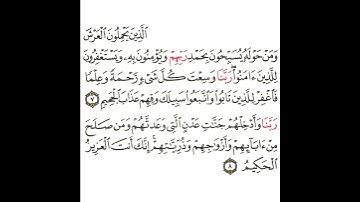 ٱلَّذِينَ يَحْمِلُونَ ٱلْعَرْشَ
وَمَنْ حَوْلَهُۥ يُسَبِّحُونَ بِحَمْدِ رَبِّهِمْ وَيُؤْمِنُونَ بِهِۦ وَيَسْتَغْفِرُونَ
لِلَّذِينَ ءَامَنُوا۟ رَبَّنَا وَسِعْتَ كُلَّ شَىْءٍ رَّحْمَةً وَعِلْمًا
فَٱغْفِرْ لِلَّذِينَ تَابُوا۟ وَٱتَّبَعُوا۟ سَبِيلَكَ وَقِهِمْ عَذَابَ ٱلْجَحِيمِ ٧
رَبَّنَا وَأَدْخِلْهُمْ جَنَّٰتِ عَدْنٍ ٱلَّتِى وَعَدتَّهُمْ وَمَن صَلَحَ
مِنْ ءَابَآئِهِمْ وَأَزْوَٰجِهِمْ وَذُرِّيَّٰتِهِمْ إِنَّكَ أَنتَ ٱلْعَزِيزُ
ٱلْحَكِيمُ ٨